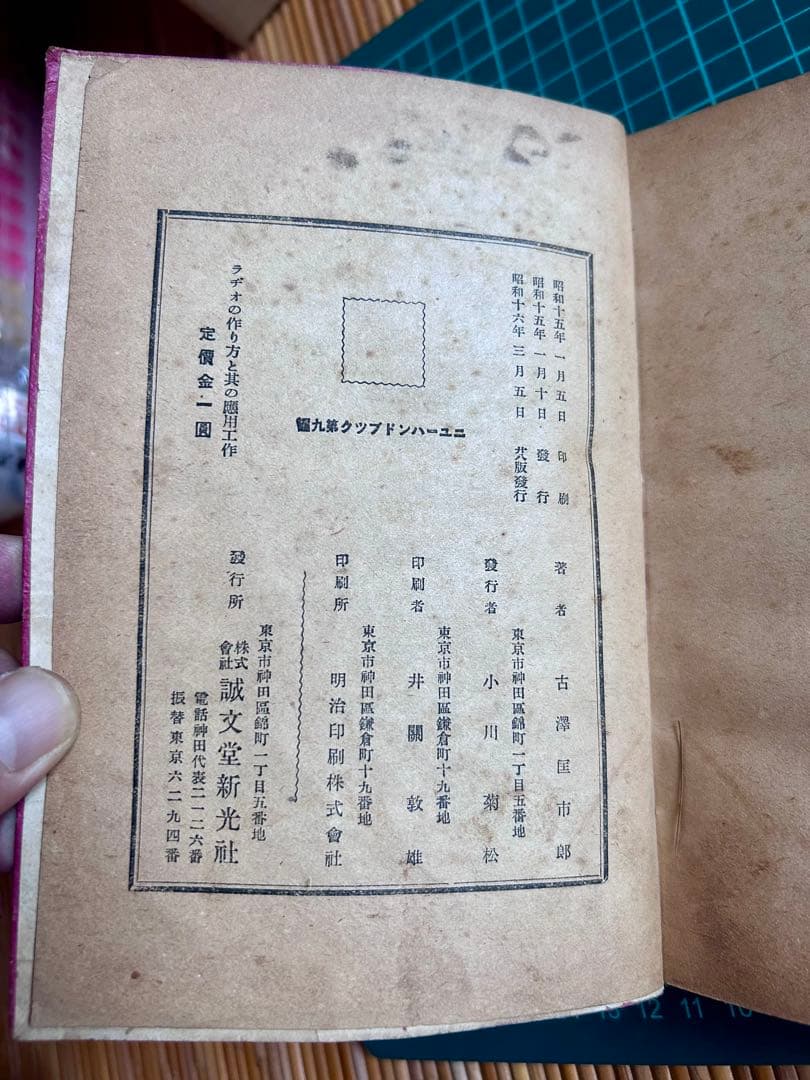 昭和十五年一月五日 印刷
昭和十五年一月十日 發行
昭和十六年三月五日 廿八版發行
ニユーハンドブツク第九編
ラヂオの作り方と其の應用工作
定價金一圓
著者 古澤匡市郎
東京市神田區錦町一丁目五番地
發行者 小川菊松
東京市神田區鎌倉町十九番地
印刷者 井關敦雄
東京市神田區鎌倉町十九番地
印刷所 明治印刷株式會社
東京市神田區錦町一丁目五番地
發行所 株式會社 誠文堂新光社
電話神田代表二一二六番
振替東京六二九四番
13 12 11 10